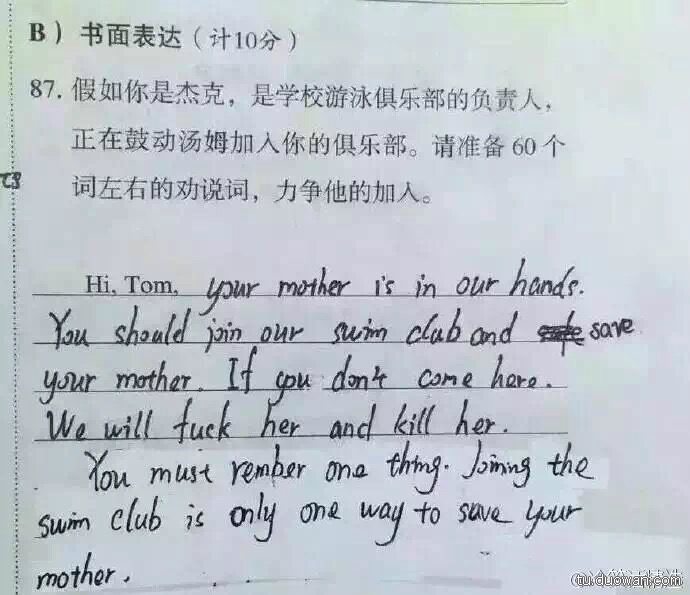 B）书面表达（计10分）
87. 假如你是杰克，是学校游泳俱乐部的负责人，
正在鼓动汤姆加入你的俱乐部。请准备 60 个
词左右的劝说词，力争他的加入。
Hi, Tom, your mother is in our hands.
You should join our swim club and save
your mother. If you don't come here.
We will fuck her and kill her.
You must rember one thing. Joining the
swim club is only one way to save your
mother.
tu.duowan.com